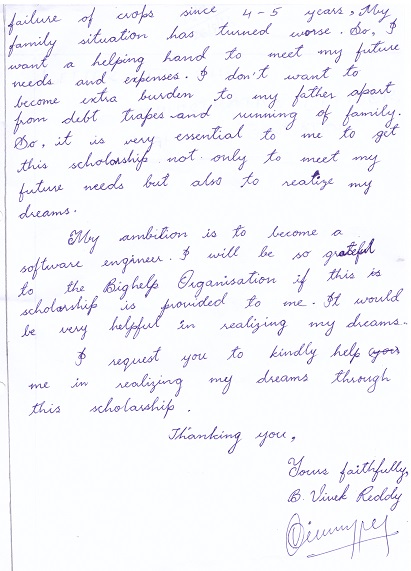 failure of crops since 4-5 years, My
family situation has turned worse. So, I
want a helping hand to meet my future
needs and expenses. I don't want to
become extra burden to my father apart
from debt trapes and running of family.
So, it is very essential to me to get
this scholarship not only to meet my
future needs but also to realize my
dreams.
My ambition is to become a
software engineer. I will be so grateful
to the Bighelp Organisation if this is
scholarship is provided to me. It would
be very helpful in realizing my dreams.
I request you to kindly help
me in realizing my dreams through
this scholarship.
Thanking you,
Yours faithfully,
B. Vivek Reddy